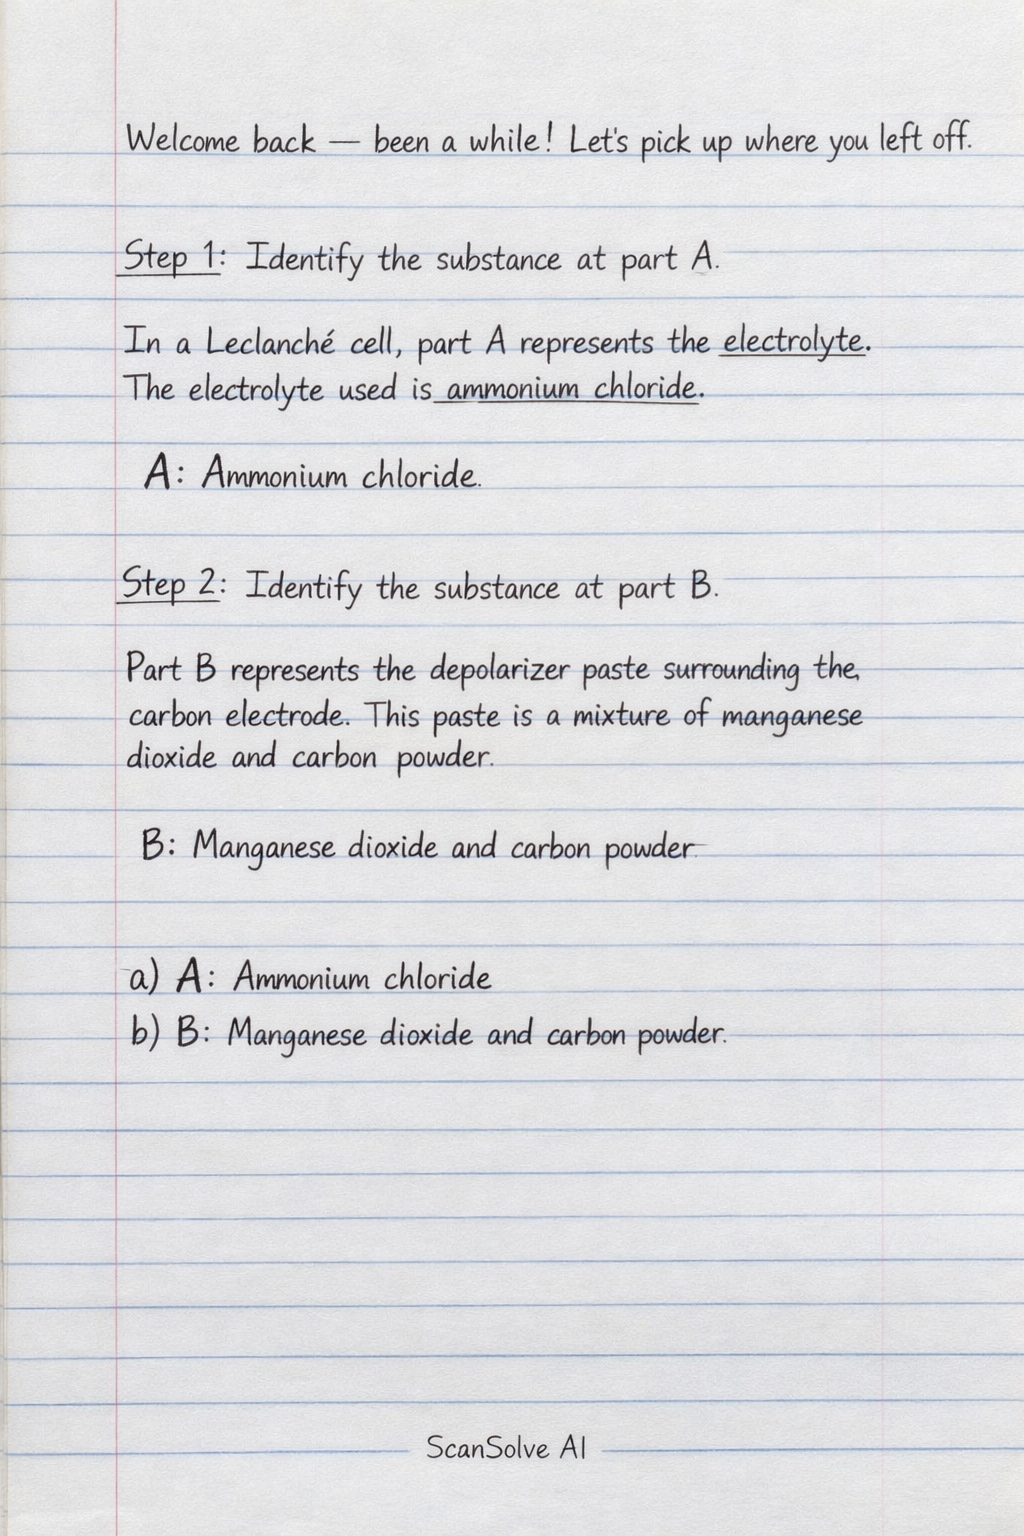 Welcome back — been a while! Let's pick up where you left off.
Step 1: Identify the substance at part A.
In a Leclanché cell, part A represents the electrolyte.
The electrolyte used is ammonium chloride.
A: Ammonium chloride.
Step 2: Identify the substance at part B.
Part B represents the depolarizer paste surrounding the
carbon electrode. This paste is a mixture of manganese
dioxide and carbon powder.
B: Manganese dioxide and carbon powder
a) A: Ammonium chloride
b) B: Manganese dioxide and carbon powder.
ScanSolve AI